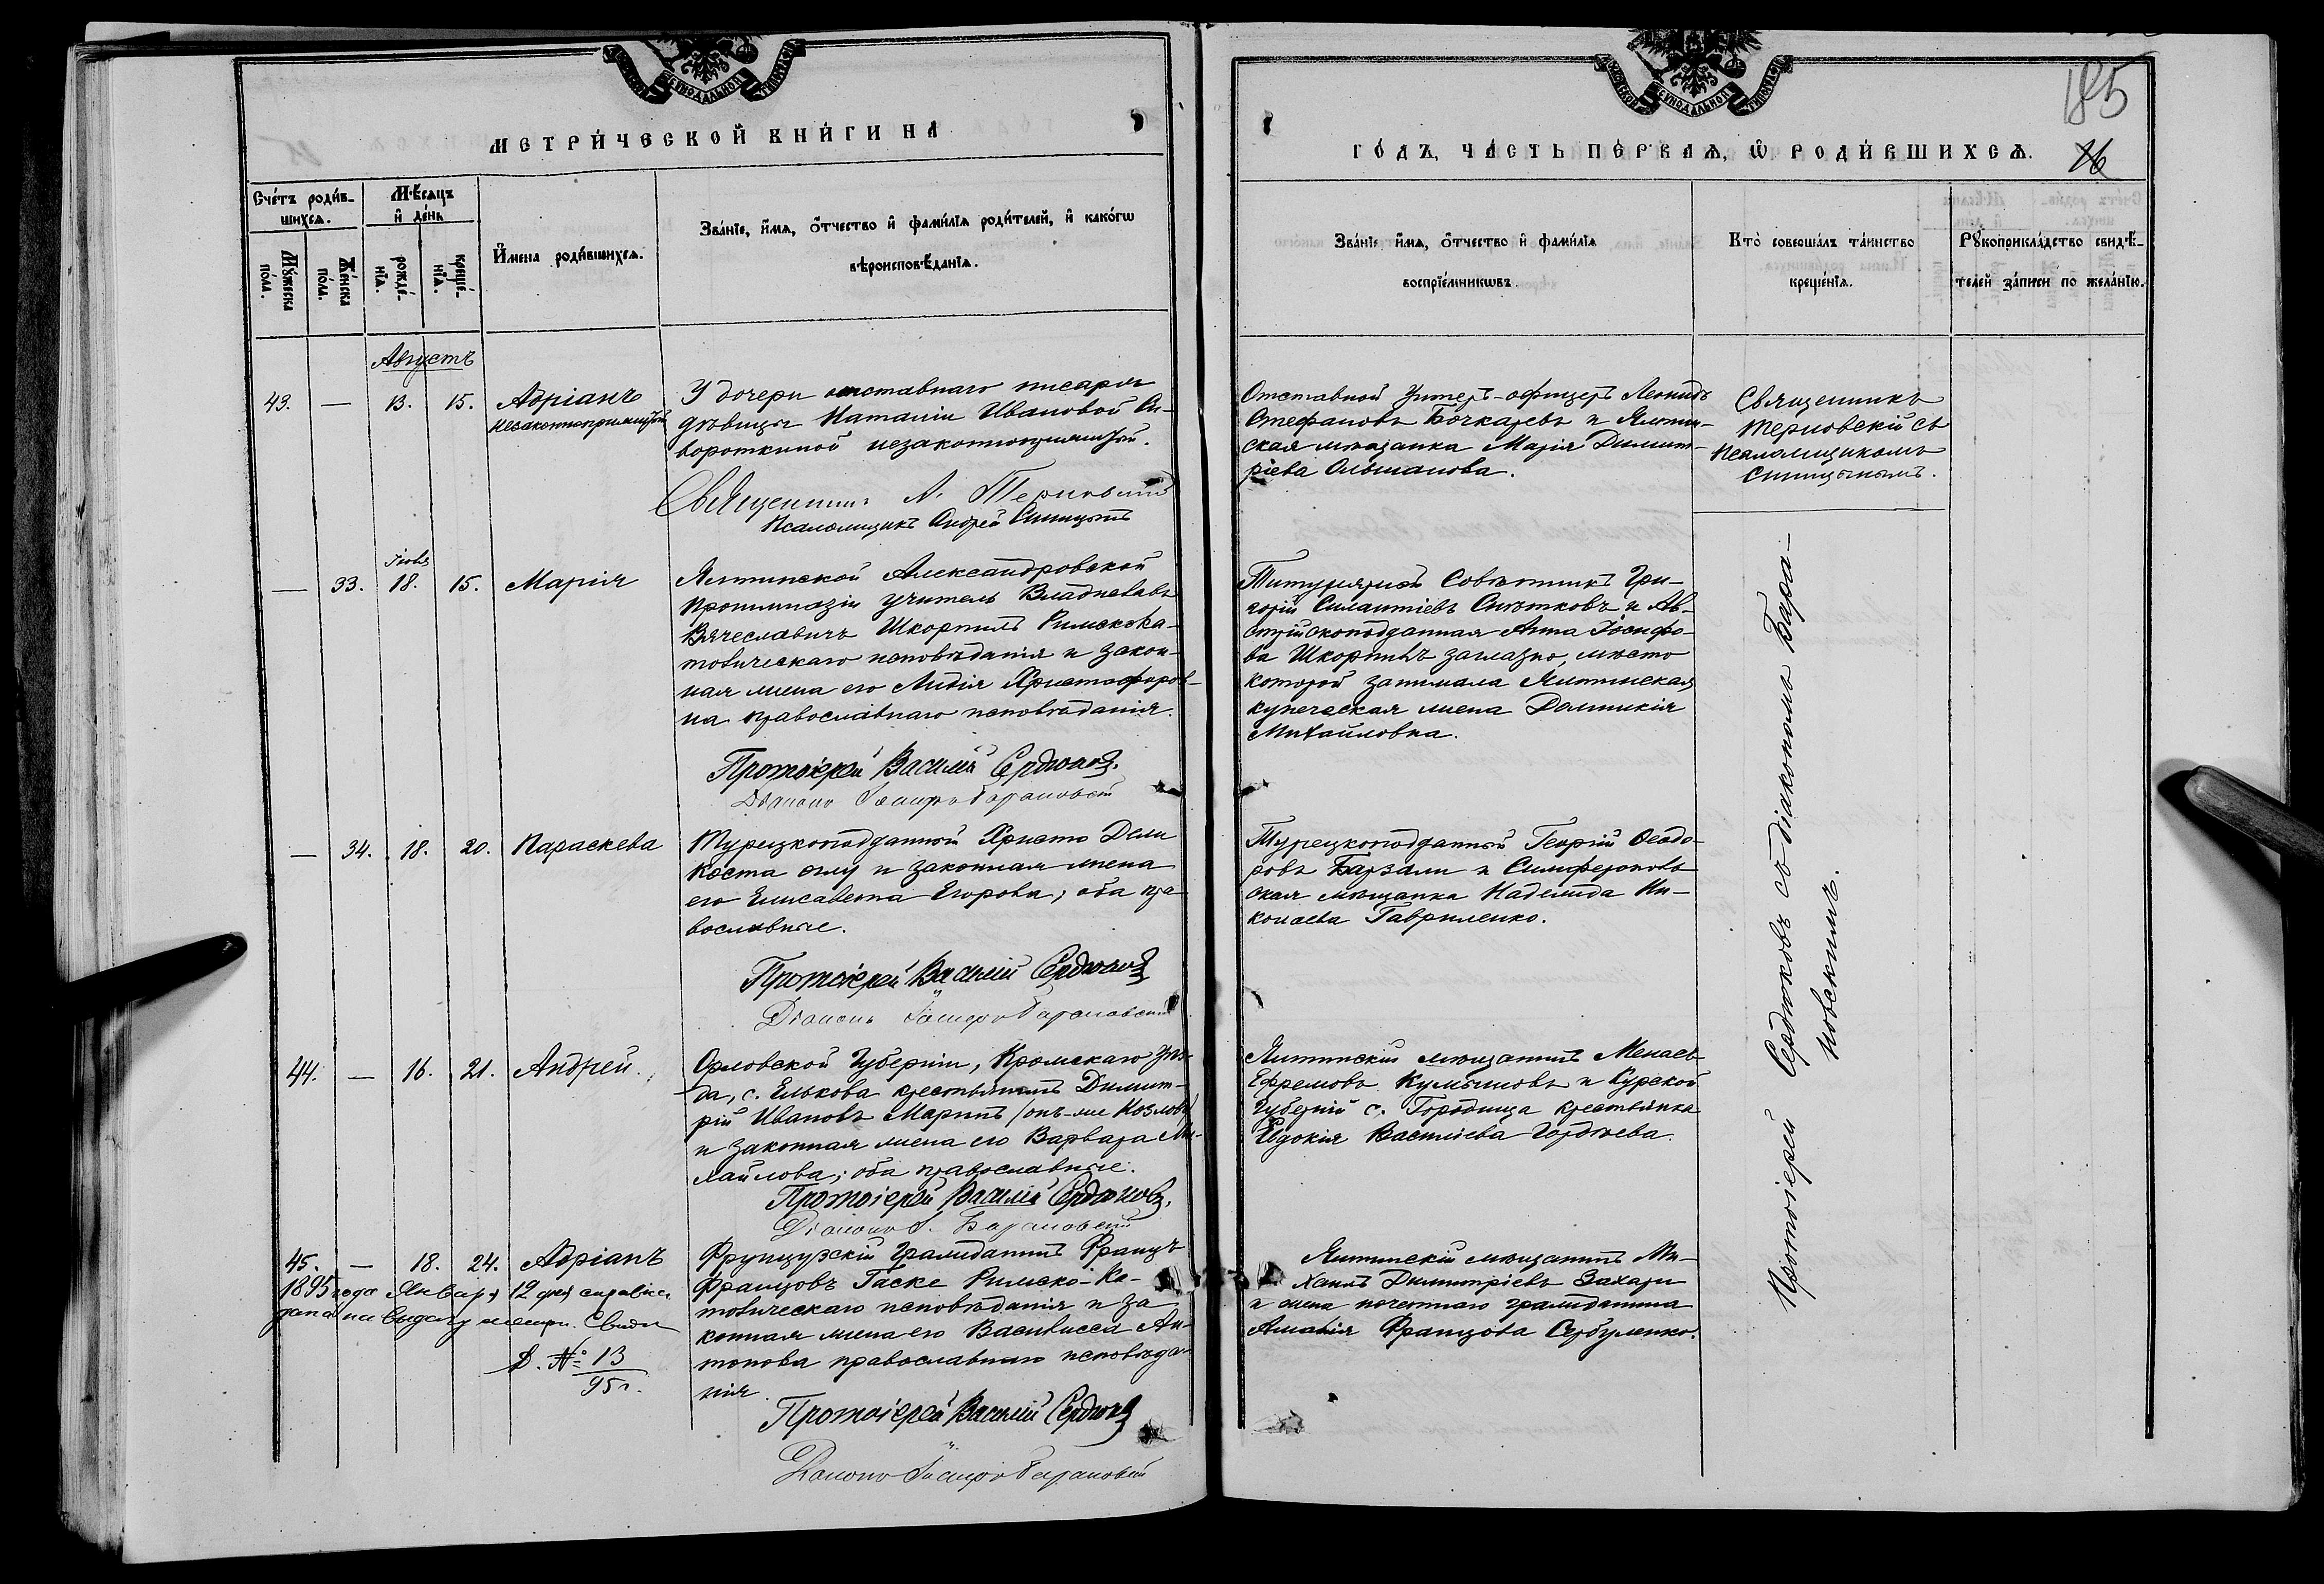 МЕТРИ́ЧЕСКОЙ КНИ́ГИ НА
Сче́тъ роди́в-
шихсѧ.
Мѣ́сѧцъ
и҆ де́нь
Мꙋ́жеска
по́ла.
Же́нска
по́ла.
рожде́-
нїѧ.
креще́-
нїѧ.
И҆мена роди́вшихсѧ.
Зва́нїе, и҆́мѧ, ѻ҆́тчество и҆ фами́лїѧ роди́телей, и҆ како́гѡ
вѣроисповѣ́данїѧ.
Августъ
43. — 13. 15. Адріанъ
незаконноприжитый
У дочери отставнаго писаря
дѣвицы Наталіи Ивановой Си-
вороткиной незаконноприжитый.
Священникъ А. Терновскій
Псаломщикъ Андрей Синицынъ
Іюля
— 33. 18. 15. Марія
Ялтинской Александровской
прогимназіи учитель Владиславъ
Вячеславичъ Шкорпилъ Римскока-
толическаго исповѣданія и закон-
ная жена его Лидія Христофоров-
на православнаго исповѣданія.
Протоіерей Василій Сердюковъ.
Діаконъ Іосифъ Барановскій
— 34. 18. 20. Параскева
Турецкоподданной Христо Дели
Коста оглу и законная жена
его Елисавета Егорова; оба пра-
вославные.
Протоіерей Василій Сердюковъ
Діаконъ Іосифъ Барановскій
44. — 16. 21. Андрей.
Орловской Губерніи, Кромскаго уѣз-
да, с. Елькова крестьянинъ Димит-
рій Ивановъ Маринъ (онъ-же Козловъ)
и законная жена его Варвара Ми-
хайлова; оба православные.
Протоіерей Василій Сердюковъ.
Діаконъ І. Барановскій
45. — 18. 24. Адріанъ
1895 года Января 12 дня справка
дана на выдачу метри. Свидѣ
Д. № 13
95 г.
Французскій гражданинъ Францъ
Францовъ Гаске Римско-Ка-
толическаго исповѣданія и за
конная жена его Василисса Ан-
тонова православнаго исповѣда-
нія.
Протоіерей Василій Сердюковъ
Діаконъ Іосифъ Барановскій
185
16
ГО́ДЪ, ЧА́СТЬ ПЕ́РВАѦ, Ѡ҆ РОДИ́ВШИХСѦ.
Зва́нїе и҆́мѧ, ѻ҆́тчество и҆ фами́лїѧ
воспрїе́мникѡвъ.
Кто̀ соверша́лъ та́инство
креще́нїѧ.
Рꙋкоприкла́дство свидѣ́-
телей за́писи по жела́нїю.
Отставной Унтеръ-офицеръ Леонидъ
Стефановъ Бочкаревъ и Ялтин-
ская мѣщанка Марія Димит-
ріева Ольшанова.
Священникъ
Терновскій съ
псаломщикомъ
Синицынымъ.
Титулярный Совѣтникъ Гри-
горій Силантіевъ Сиѣтковъ и Ав-
стрійскоподданная Анна Іосифо-
ва Шкорпилъ заглазно, мѣсто
которой занимала Ялтинская
купеческая жена Домникія
Михайловна.
Турецкоподданный Георгій Ѳеодо-
ровъ Барзали и Симферополь-
ская мѣщанка Надежда Ни-
колаева Гавриленко.
Ялтинскій мѣщанинъ Менаев
Ефремовъ Кумыковъ и Курской
Губерніи с. Городища крестьянка
Евдокія Василіева Гордѣева.
Ялтинскій мѣщанинъ Ми-
хаилъ Димитріевъ Захари
и жена почетнаго гражданина
Амалія Францова Сербуленко.
Протоіерей Сердюковъ съ діакономъ Бара-
новскимъ.